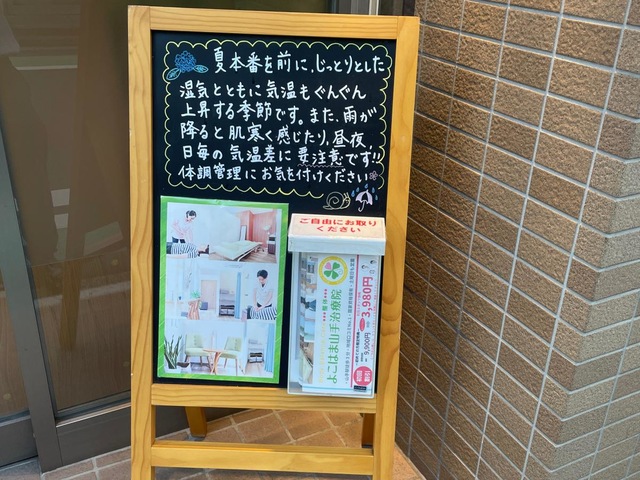 夏本番を前に、じっとりとした
湿気とともに気温もぐんぐん
上昇する季節です。また、雨が
降ると肌寒く感じたり、昼夜、
日毎の気温差に要注意です!!
体調管理にお気を付けください
ご自由にお取り
ください
よこはま山手治療院
3,980円
9,900円